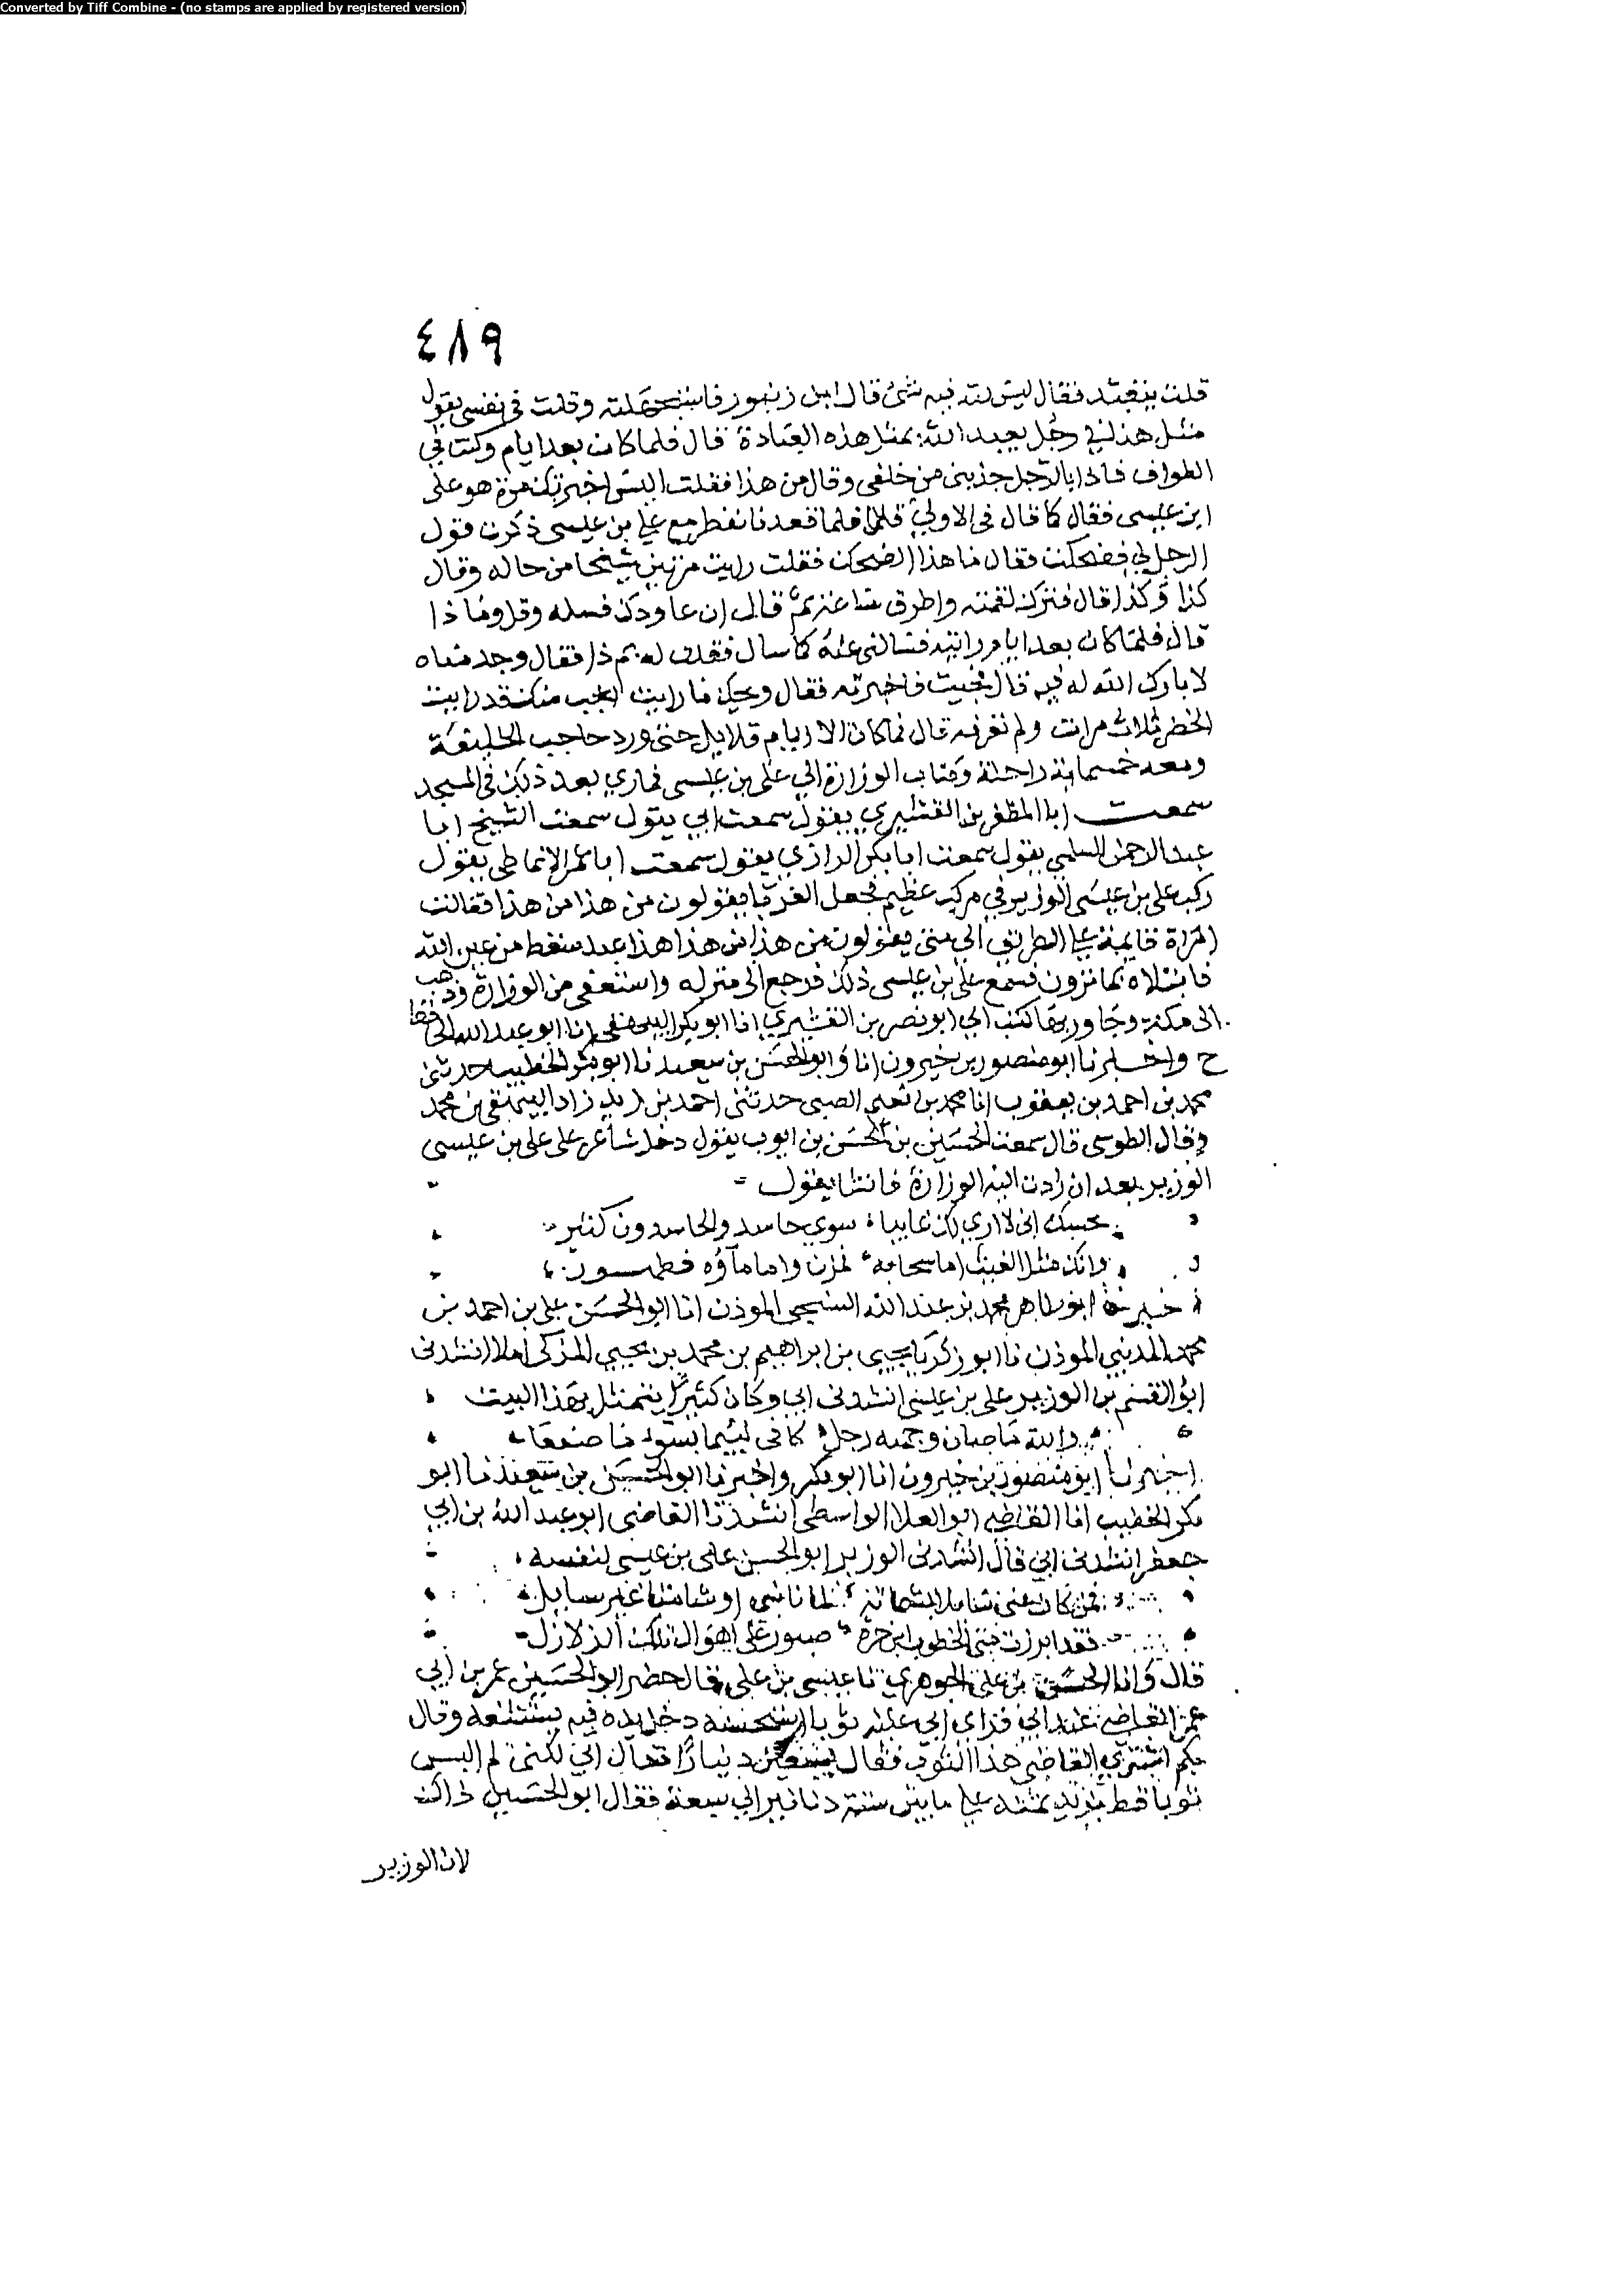 Converted by Tiff Combine - (no stamps are applied by registered version)
٤٨٩
قلت يتعبد فقال ليس لله فيه شئ قال ابن زنبور فاستجهلته وقلت في نفسي يقول
مثل هذا في رجل يعبد الله بمثل هذه العبادة قال فلما كان بعد ايام وكنت في
الطواف فاذا بالرجل جذبني من خلفي وقال من هذا فقلت اليس اخبرتك مرة هو علي
ابن عيسى فقال كما قال في الاولى قال فلما قعدنا نفطر مع علي بن عيسى ذكرت قول
الرجل لي فضحكت فقال ما هذا الضحك فقلت رايت مرتين شيخا من حاله وقال
كذا وكذا قال فترك لقمته واطرق ساعة ثم قال ان عاودك فسله وقل وماذا
قال فلما كان بعد ايام رايته فسالني عنه كما سال فقلت له بم ذا فقال وجد مناه
لا بارك الله له فيه قال فجيت فاخبرته فقال ويحك ما رايت اعجب منك قد رايت
الخضر ثلاث مرات ولم تعرفه قال فما كان الا ايام قلايل حتى ورد حاجب الخليفة
ومعه خمسماية راحلة وكتاب الوزارة الى علي بن عيسى فما ري بعد ذلك في المسجد
سمعت ابا المظفر بن القشيري يقول سمعت ابي يقول سمعت الشيخ ابا
عبد الرحمن السلمي يقول سمعت ابا بكر الرازي يقول سمعت ابا عمر الانماطي يقول
ركب علي بن عيسى الوزير في مركب عظيم فجعل الغربا يقولون من هذا من هذا فقالت
امراة قايمة على الطريق الى متى يقولون من هذا من هذا هذا عبد سقط من عين الله
فابتلاه بما ترون فسمع علي بن عيسى ذلك فرجع الى منزله واستعفى من الوزارة وذهب
الى مكة وجاور بها كتب الي ابو نصر بن القشيري انا ابو بكر البيهقي انا ابو عبد الله الحافظ
ح واخبرنا ابو منصور بن خيرون انا وابو الحسن بن سعيد نا ابو بكر الخطيب حدثني
محمد بن احمد بن يعقوب انا محمد بن نعيم الضبي حدثني احمد بن زاد البيهقي بن محمد
وقال الطوسي قال سمعت الحسين بن الحسن بن ايوب يقول دخل شاعر على علي بن عيسى
الوزير بعد ان ردت اليه الوزارة فانشا يقول
بحسبك اني لا اري لك عايبا سوى حاسد والحاسدون كثير
وانك مثل الغيث اما سحابه فمزن واما ماؤه فطهور
اخبرنا ابو طاهر محمد بن عبد الله السنجي الموذن انا ابو الحسن علي بن احمد بن
محمد المديني الموذن نا ابو زكريا يحيى بن ابراهيم بن محمد بن يحيى المزكى املا انشدني
ابو القسم بن الوزير علي بن عيسى انشدني ابي وكان كثيرا يتمثل بهذا البيت
والله ما صان وجهه رجل كافى لئيما بسوء ما صنعا
اخبرنا ابو منصور بن خيرون انا ابو بكر واخبرنا ابو الحسن بن سعيد نا ابو
بكر الخطيب انا القاضي ابو العلا الواسطي انشدنا القاضي ابو عبد الله بن ابي
جعفر انشدني ابي قال انشدني الوزير ابو الحسن علي بن عيسى لنفسه
فمن كان عني سايلا بشماتة لما نابني او شامتا غير سايل
فقد ابرزت مني الخطوب ابن حرة صبورا على اهوال تلك الزلازل
قال وانا الحسن بن علي الجوهري نا عيسى بن علي قال حضر ابو الحسين عمر بن ابي
عمر القاضي عند ابي فراى ابي عليه ثوبا استحسنه دخل يده فيه يستشفه وقال
بكم اشترى القاضي هذا الثوب فقال بسبعين دينارا فقال ابي لكني لم البس
ثوبا قط يزيد ثمنه على ما بين ستة دنانير الى سبعة فقال ابو الحسين ذاك
لان الوزير